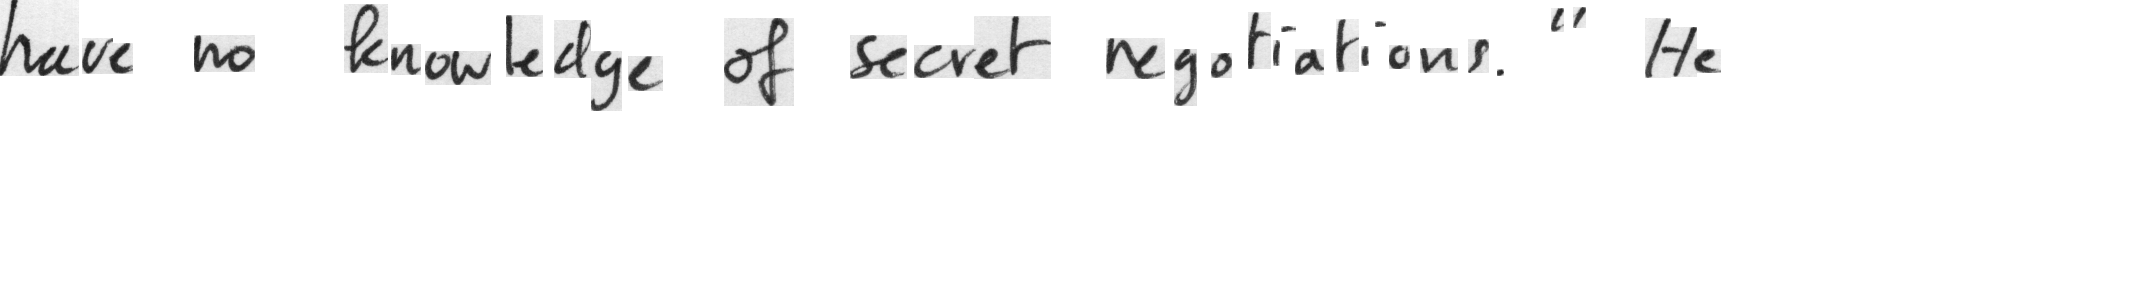 have no knowledge of secret negotiations." He